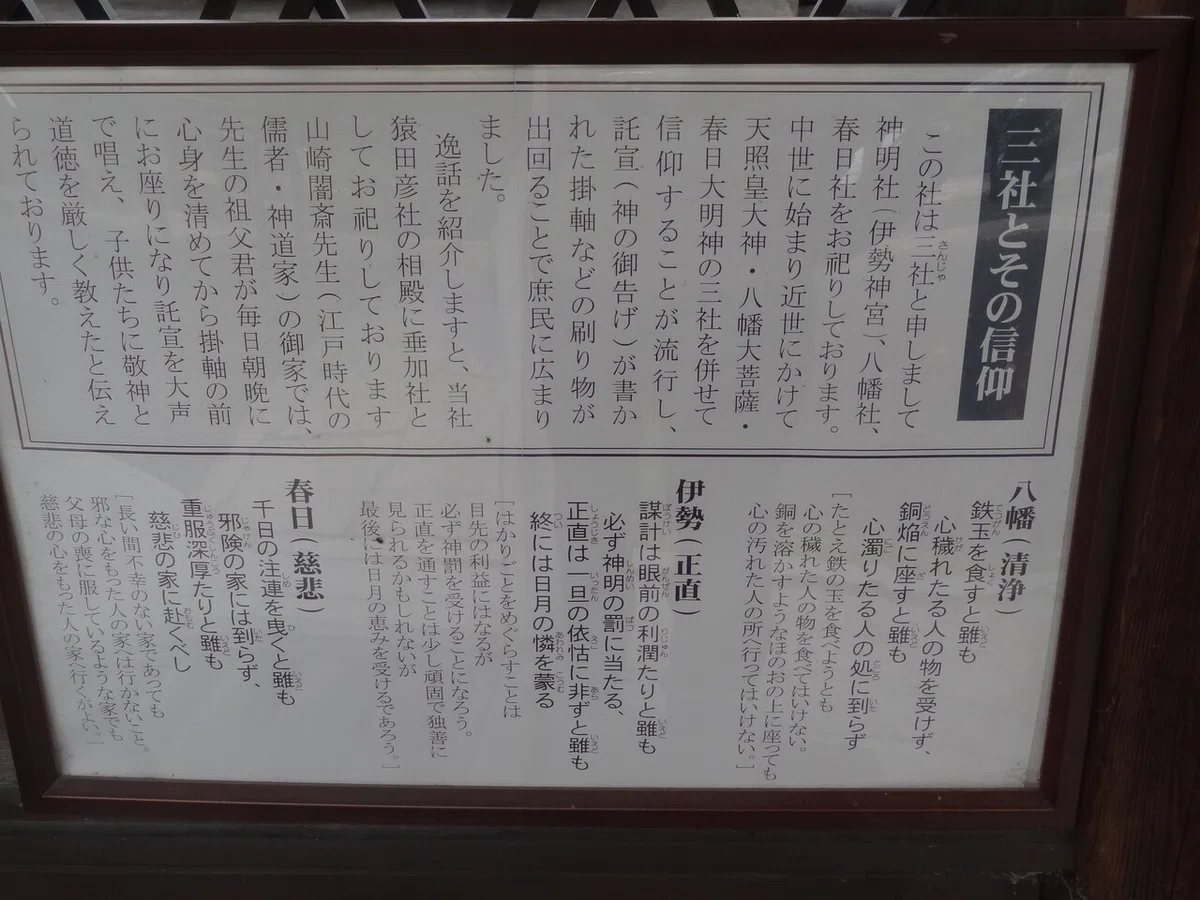 三社とその信仰
この社は三社と申しまして
神明社(伊勢神宮)、八幡社、
春日社をお祀りしております。
中世に始まり近世にかけて
天照皇大神・八幡大菩薩・
春日大明神の三社を併せて
信仰することが流行し、
託宣(神の御告げ)が書か
れた掛軸などの刷り物が
出回ることで庶民に広まり
ました。
逸話を紹介しますと、当社
猿田彦社の相殿に垂加社と
してお祀りしております
山崎闇斎先生(江戸時代の
儒者・神道家)の御家では、
先生の祖父君が毎日朝晩に
心身を清めてから掛軸の前
にお座りになり託宣を大声
で唱え、子供たちに敬神と
道徳を厳しく教えたと伝え
られております。
八幡(清浄)
鉄玉を食すと雖も
心穢れたる人の物を受けず、
銅焔に座すと雖も
心濁りたる人の処に到らず
[たとえ鉄の玉を食べようとも
心の穢れた人の物を食べてはいけない。
銅を溶かすようなほのおの上に座っても
心の汚れた人の所へ行ってはいけない。]
伊勢(正直)
謀計は眼前の利潤たりと雖も
必ず神明の罰に当たる、
正直は一旦の依怙に非ずと雖も
終には日月の憐を蒙る
[はかりごとをめぐらすことは
目先の利益にはなるが
必ず神罰を受けることになろう。
正直を通すことは少し頑固で独善に
見られるかもしれないが
最後には日月の恵みを受けるであろう。]
春日(慈悲)
千日の注連を曳くと雖も
邪険の家には到らず、
重服深厚たりと雖も
慈悲の家に赴くべし
[長い間不幸のない家であっても
邪な心をもった人の家へは行かないこと。
父母の喪に服しているような家でも
慈悲の心をもった人の家へ行くがよい。]